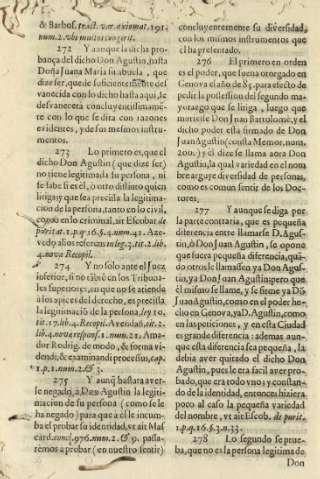 & Barbos. tract. var. axiomat. 191.
num. 2. vbi multos congerit.
272 Y aunque la dicha pro-
bança del dicho Don Agustin, hasta
Doña Juana Maria su abuela, que
dize ser, que de suficientemẽte des-
vanecida con lo dicho hasta aqui, se
desvanecerá concluyentissimamē-
te con lo que se dira con razones
evidentes, y de sus mesmos instru-
mentos.
273 Lo primero es, que el
dicho Don Agustin (que dize ser)
no tiene legitimada su persona, ni
se sabe si es èl, ò otro distinto quien
litiga, y que sea precissa la legitima-
cion de la persona, tanto en lo civil,
como en lo criminal, ait Escobar de
purit. at. 1. p. q. 16. §. 4. num. 41. Aze-
vedo alios referens in leg. 3. tit. 2. lib.
4. novæ Recopil.
274 Y no solo ante el Juez
inferior, si no tābien en los Tribuna-
les superiores, en que no se atiende
à los apices del derecho, es precissa
la legitimaciõ de la persona, ley 10.
tit. 17. lib. 4. Recopil. Avendañ. tit. 2.
lib. 4. novæ respons. 1. num. 21. Ama-
dor Rodrig. de modo, & forma vi-
dendi, & examinandi processus, cap.
1. p. 1. num. 2. & 3.
275 Y aunq̃ bastara aver-
se negado à Don Agustin la legiti-
macion de su persona (como se le
ha negado) para que à èl le incum-
ba el probar su identidad, vt ait Mas
card. concl. 976. num. 2. & 9. passa-
rèmos a probar (en nuestro sentir)
concluyentemente su diversidad,
con los mismos instrumentos que
èl ha presentado.
276 El primero en orden
es el poder, que suena otorgado en
Genova el año de 85. para efecto de
pedir la possession del segundo ma-
yorazgo que se litiga, luego que
muriesse Don Juan Bartolomè, y el
dicho poder està firmado de Don
Juan Agustin (consta Memor. num.
200.) y èl dize se llama aora Don
Agustin, la qual variedad en el nom
bre arguye diversidad de personas,
como es comun sentir de los Doc-
tores.
277 Y aunque se diga por
la parte contraria, que es pequeña
diferencia entre llamarse D. Agus-
tin, ò Don Juan Agustin, se opone
que fuera pequeña diferencia, quã-
do otros le llamassen ya Don Agus-
tin, ya Don Juan Agustin; pero que
èl mismo se llame, y se firme ya Dõ
Juan Agustin, como en el poder he-
cho en Genova, ya D. Agustin, como
en las peticiones, y en esta Ciudad
es grande diferencia: ademas aun-
que esta diferencia sea pequeña, la
debia aver quitado el dicho Don
Agustin, pues le era facil aver pro-
bado, que era todo vno; y constan-
do de la identidad, entonces hiziera
poco al caso la pequeña variedad
del nombre, vt ait Escob. de purit.
1. p. q. 16. §. 3. n. 33.
278 Lo segundo se prue-
ba, que no es la persona legitima de
Don